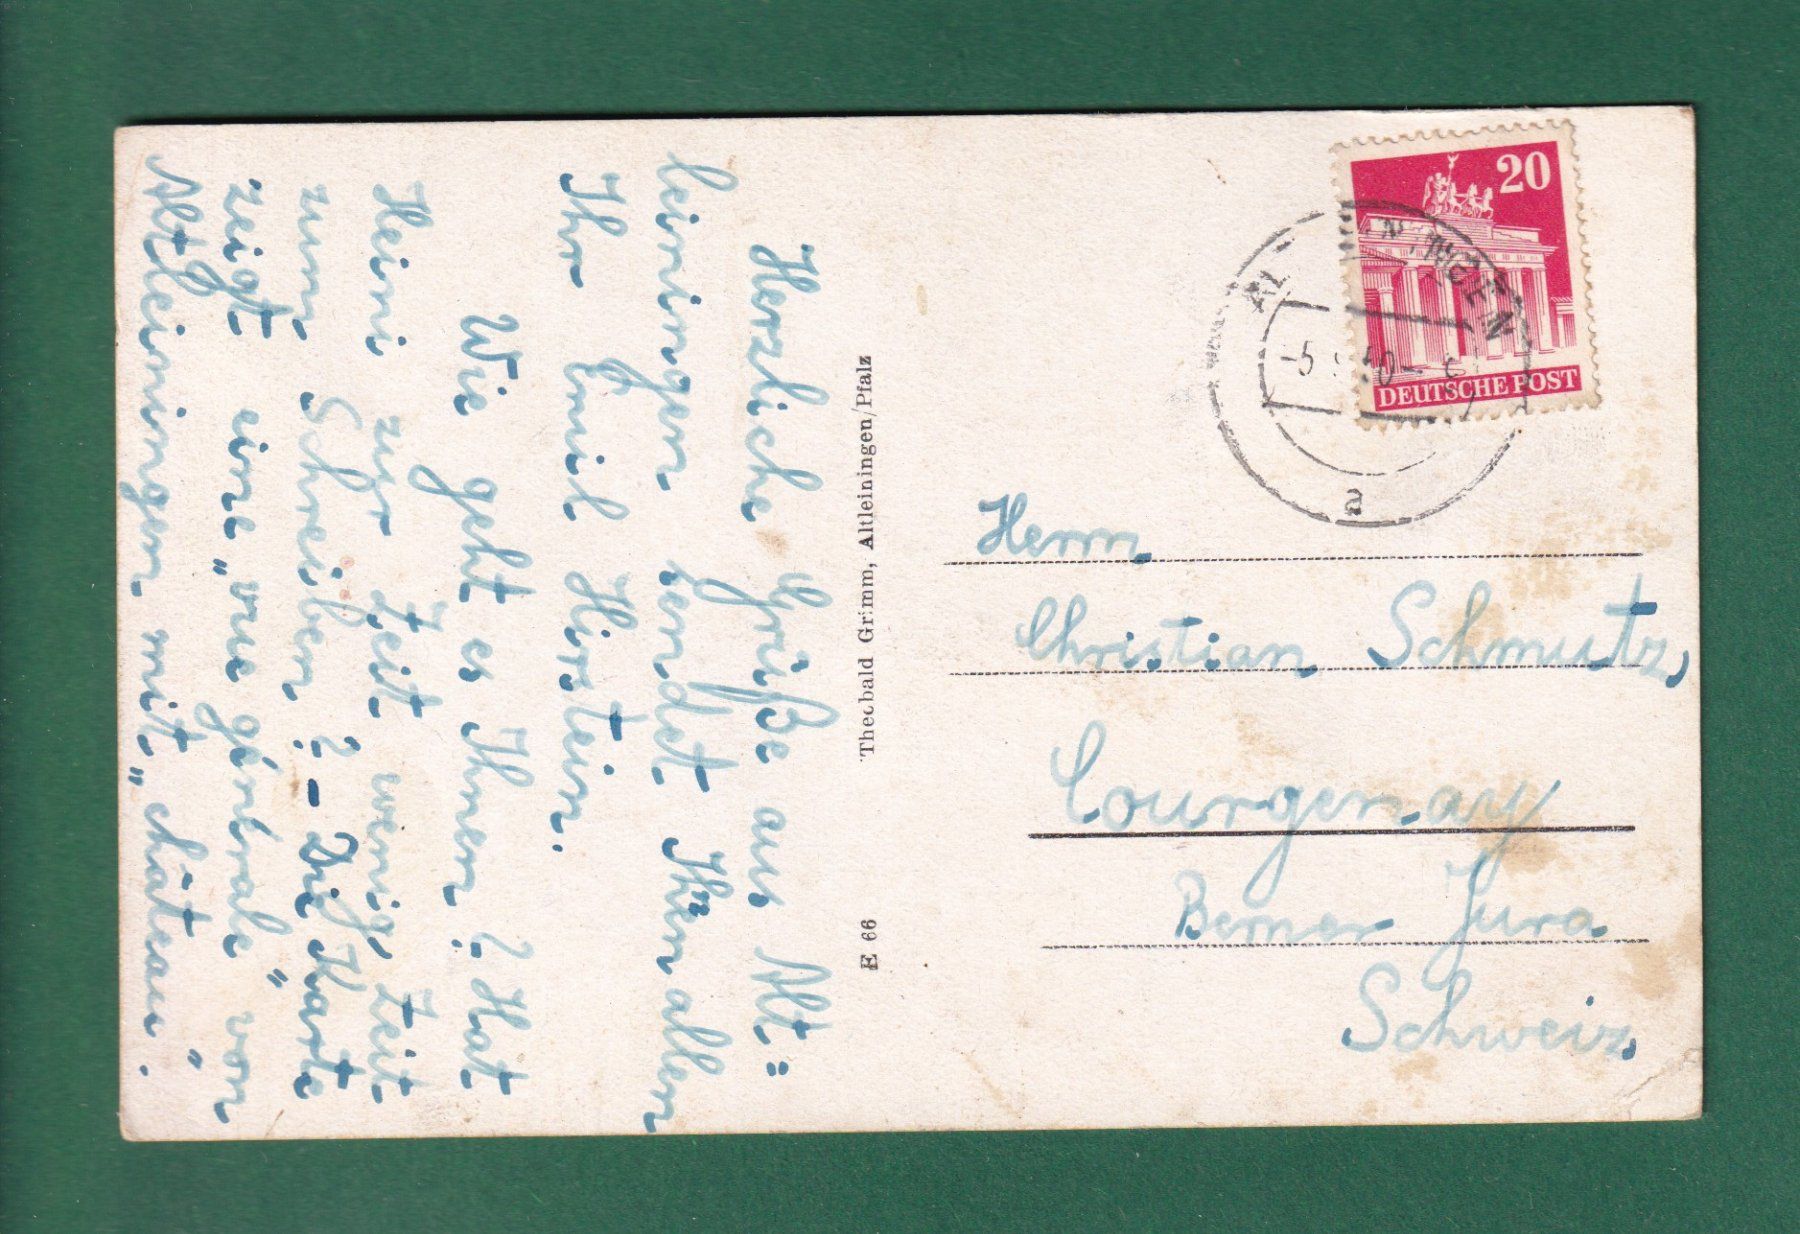 Herzliche Grüße aus Alt=
leiningen sendet Ihnen allen
Ihr Emil Hirstein.
Wie geht es Ihnen? Hat
Heini zur Zeit wenig Zeit
zum Schreiben? - Die Karte
zeigt eine „vue générale" von
Altleiningen mit „château".
Theobald Grimm, Altleiningen/Pfalz
E 66
20
DEUTSCHE POST
a
Herrn
Christian Schmutz,
Courgenay
Berner Jura
Schweiz,